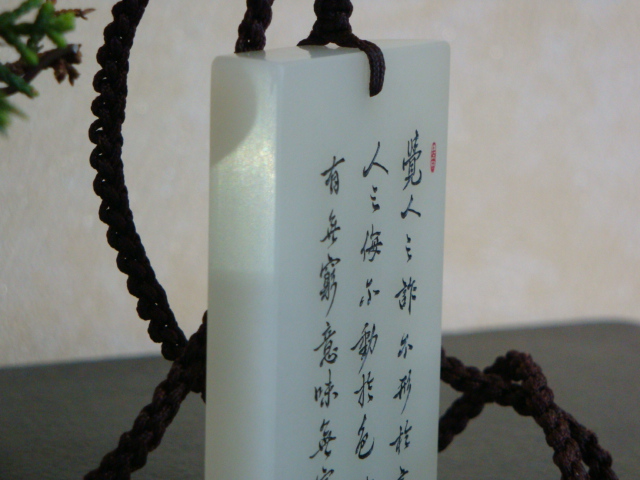 覺人之詐不形於
人之侮不動於色
有無窮意味無